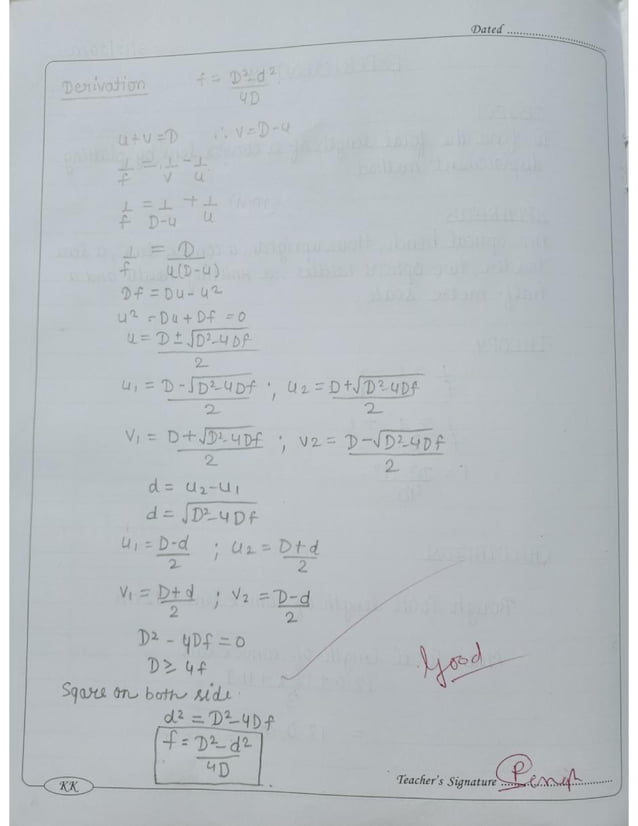 Dated
Derivation f = D²-d²/4D
u+v=D ∴ v=D-u
1/f = 1/v - 1/u
1/f = 1/D-u + 1/u
1/f = D/u(D-u)
Df = Du - u²
u² - Du + Df = 0
u = D ± √D²-4Df/2
u₁ = D-√D²-4Df/2 ; u₂ = D+√D²-4Df/2
v₁ = D+√D²-4Df/2 ; v₂ = D-√D²-4Df/2
d = u₂-u₁
d = √D²-4Df
u₁ = D-d/2 ; u₂ = D+d/2
v₁ = D+d/2 ; v₂ = D-d/2
D² - 4Df = 0
D ≥ 4f
Sqare on both side.
d² = D²-4Df
f = D²-d²/4D
Good
Teacher's Signature
KK